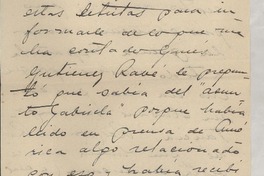 estas letritas para in
formarle de lo que me
ha contado Gmes.
Gutierrez Rabé le pregun
tó que sabía del "asun
to Gabriela" porque había
leído en prensa de Amé
rica algo relacionado
con eso y había recibi